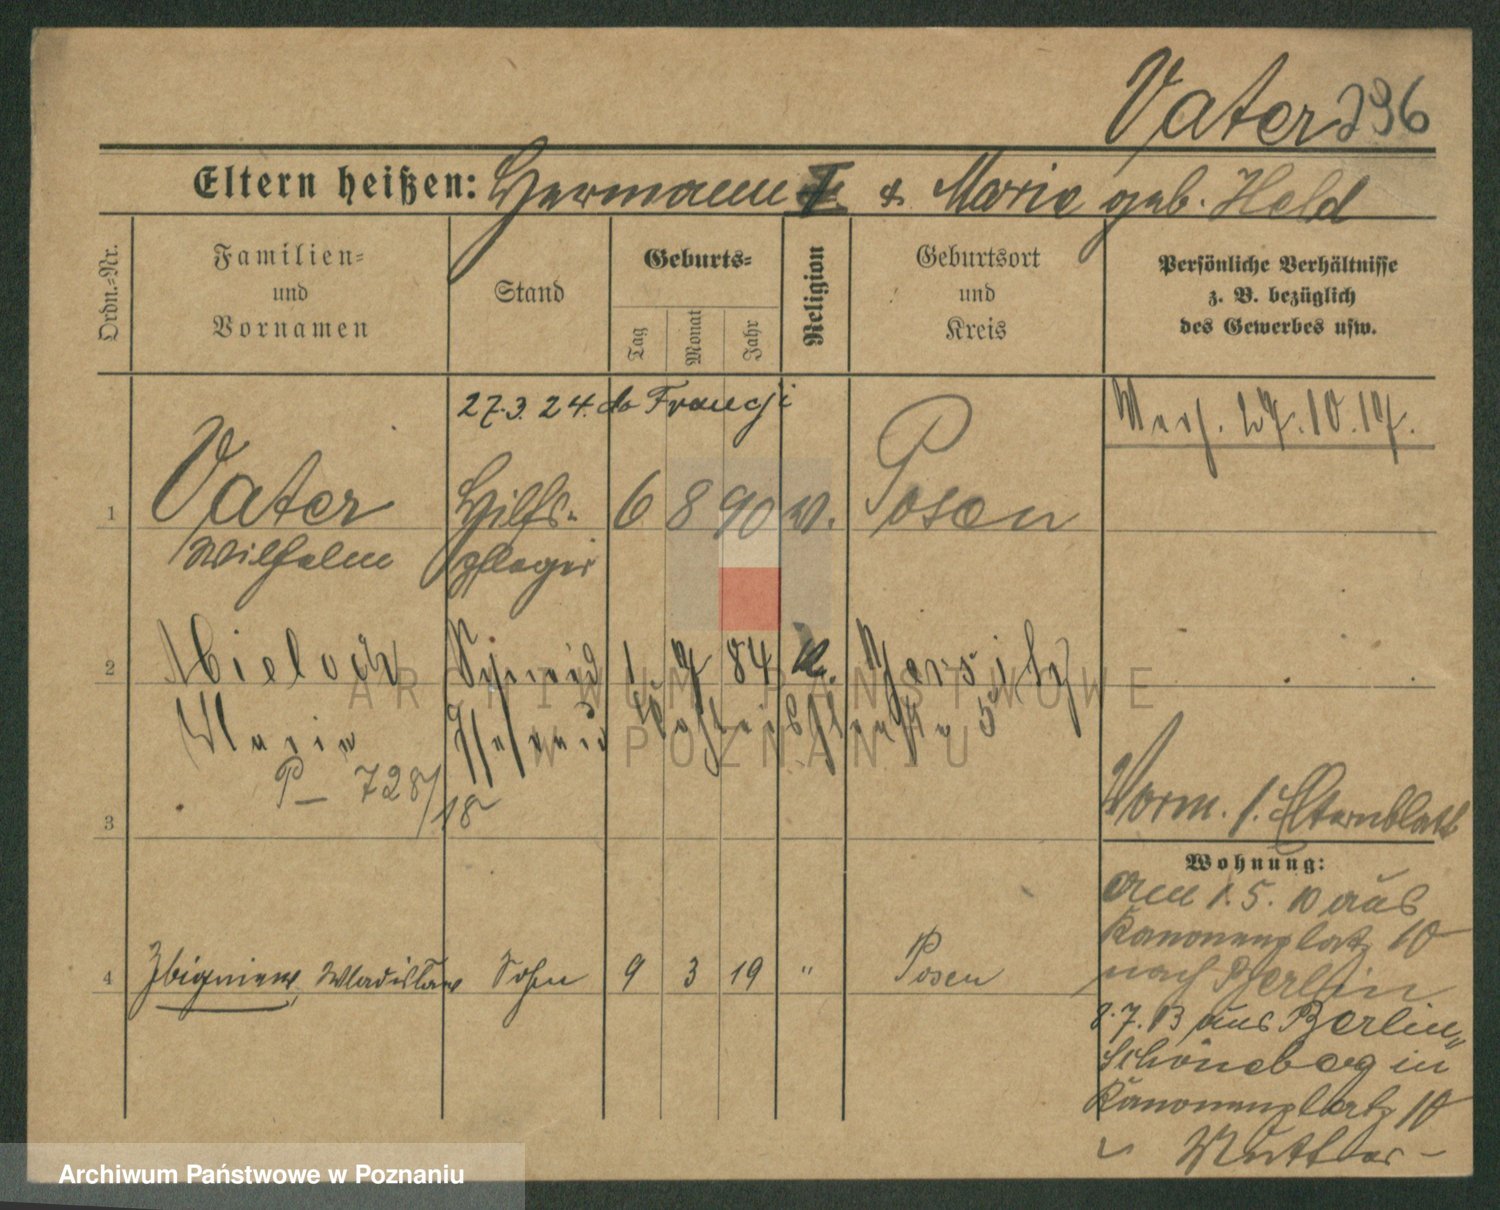 Vater 296
Eltern heißen: Hermann & Maria geb. Held
Ordn.-Nr.
Familien-
und
Vornamen
Stand
Geburts-
Tag
Monat
Jahr
Religion
Geburtsort
und
Kreis
Persönliche Verhältnisse
z. B. bezüglich
des Gewerbes usw.
27.3.24. do Francji
27.10.17.
1 Vater Hilfs- 6 8 90 Posen
Wilhelm
2 84 Jersitz
Maria
P- 728/18
3
Vorm. 1. Elternblatt
Wohnung:
am 1.5.10 aus
Kanonenplatz 10
nach Berlin
4 Zbigniew, Wladislaw Sohn 9 3 19 " Posen
8.7.13 aus Berlin-
Schöneberg in
Kanonenplatz 10
Mutter -
ARCHIWUM PAŃSTWOWE
W POZNANIU
Archiwum Państwowe w Poznaniu